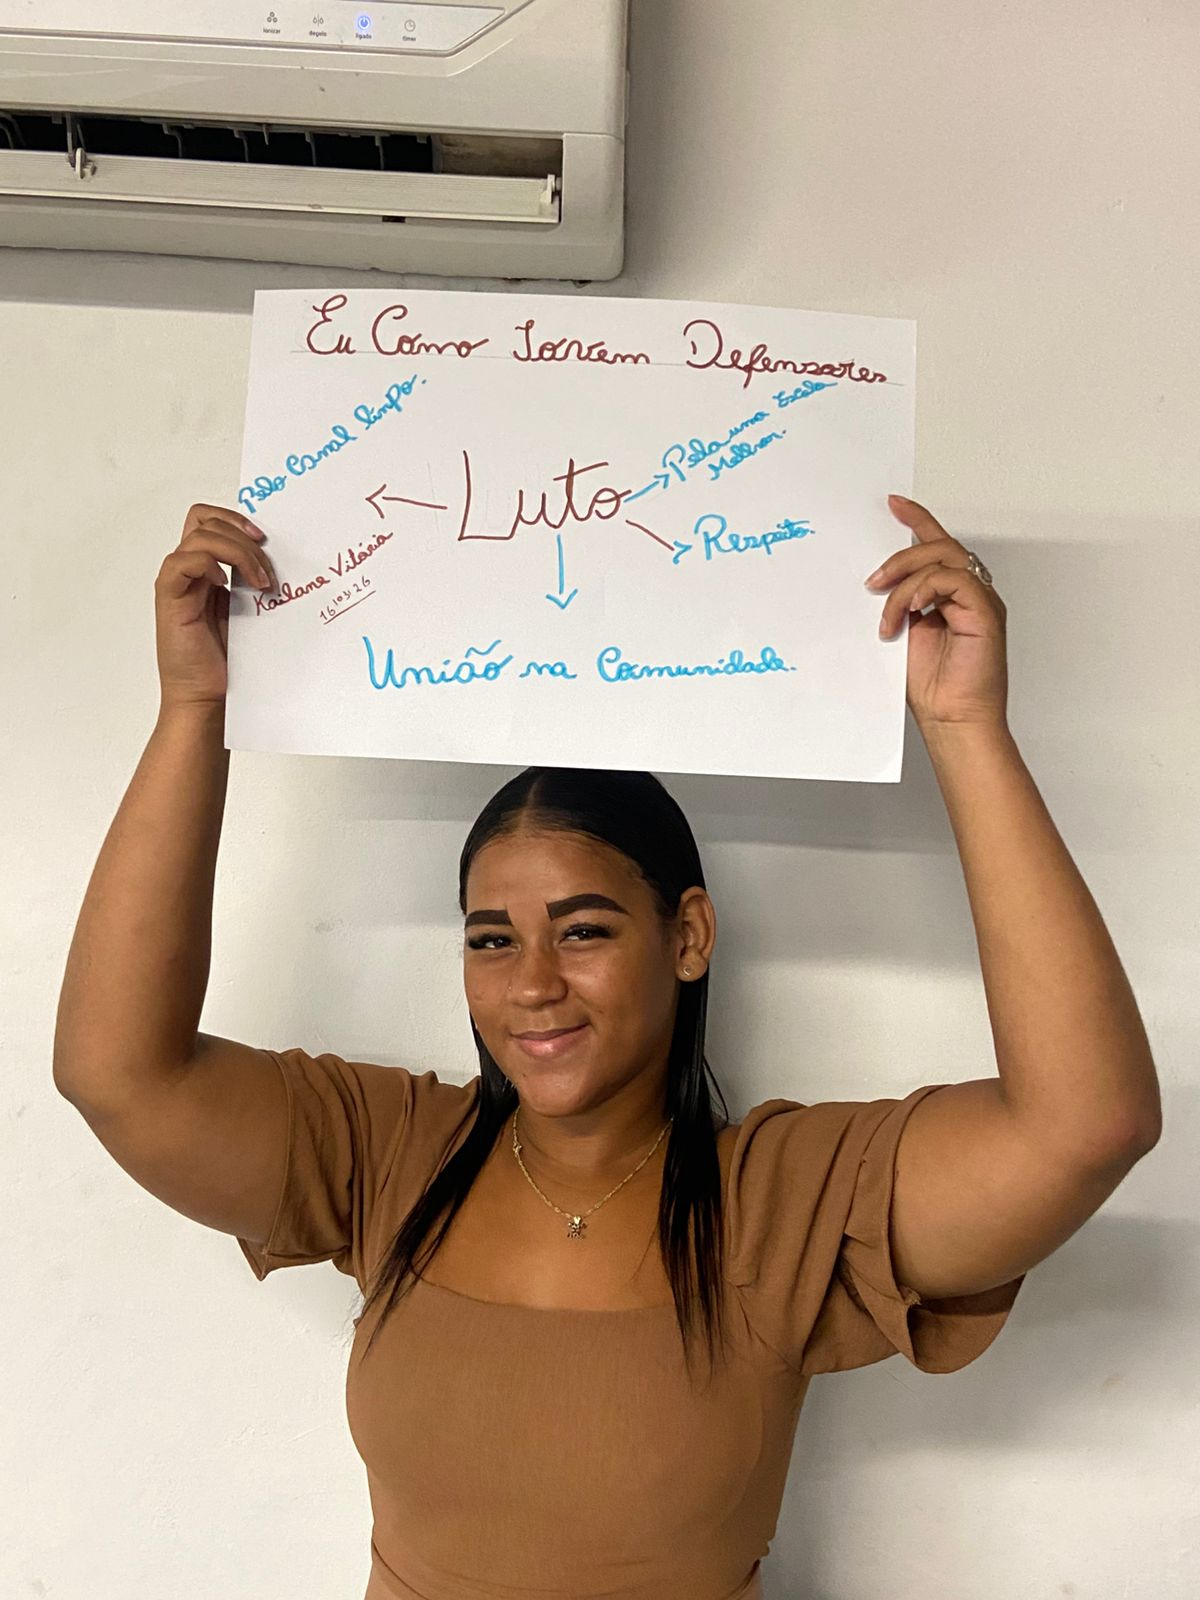 ionizar degelo ligado timer
Eu Como Jovem Defensores
Pelo Canal linpo.
Luto
Pela uma Escola
Melhor.
Respeito.
Kailane Vitória
16.03.26
União na Comunidade.